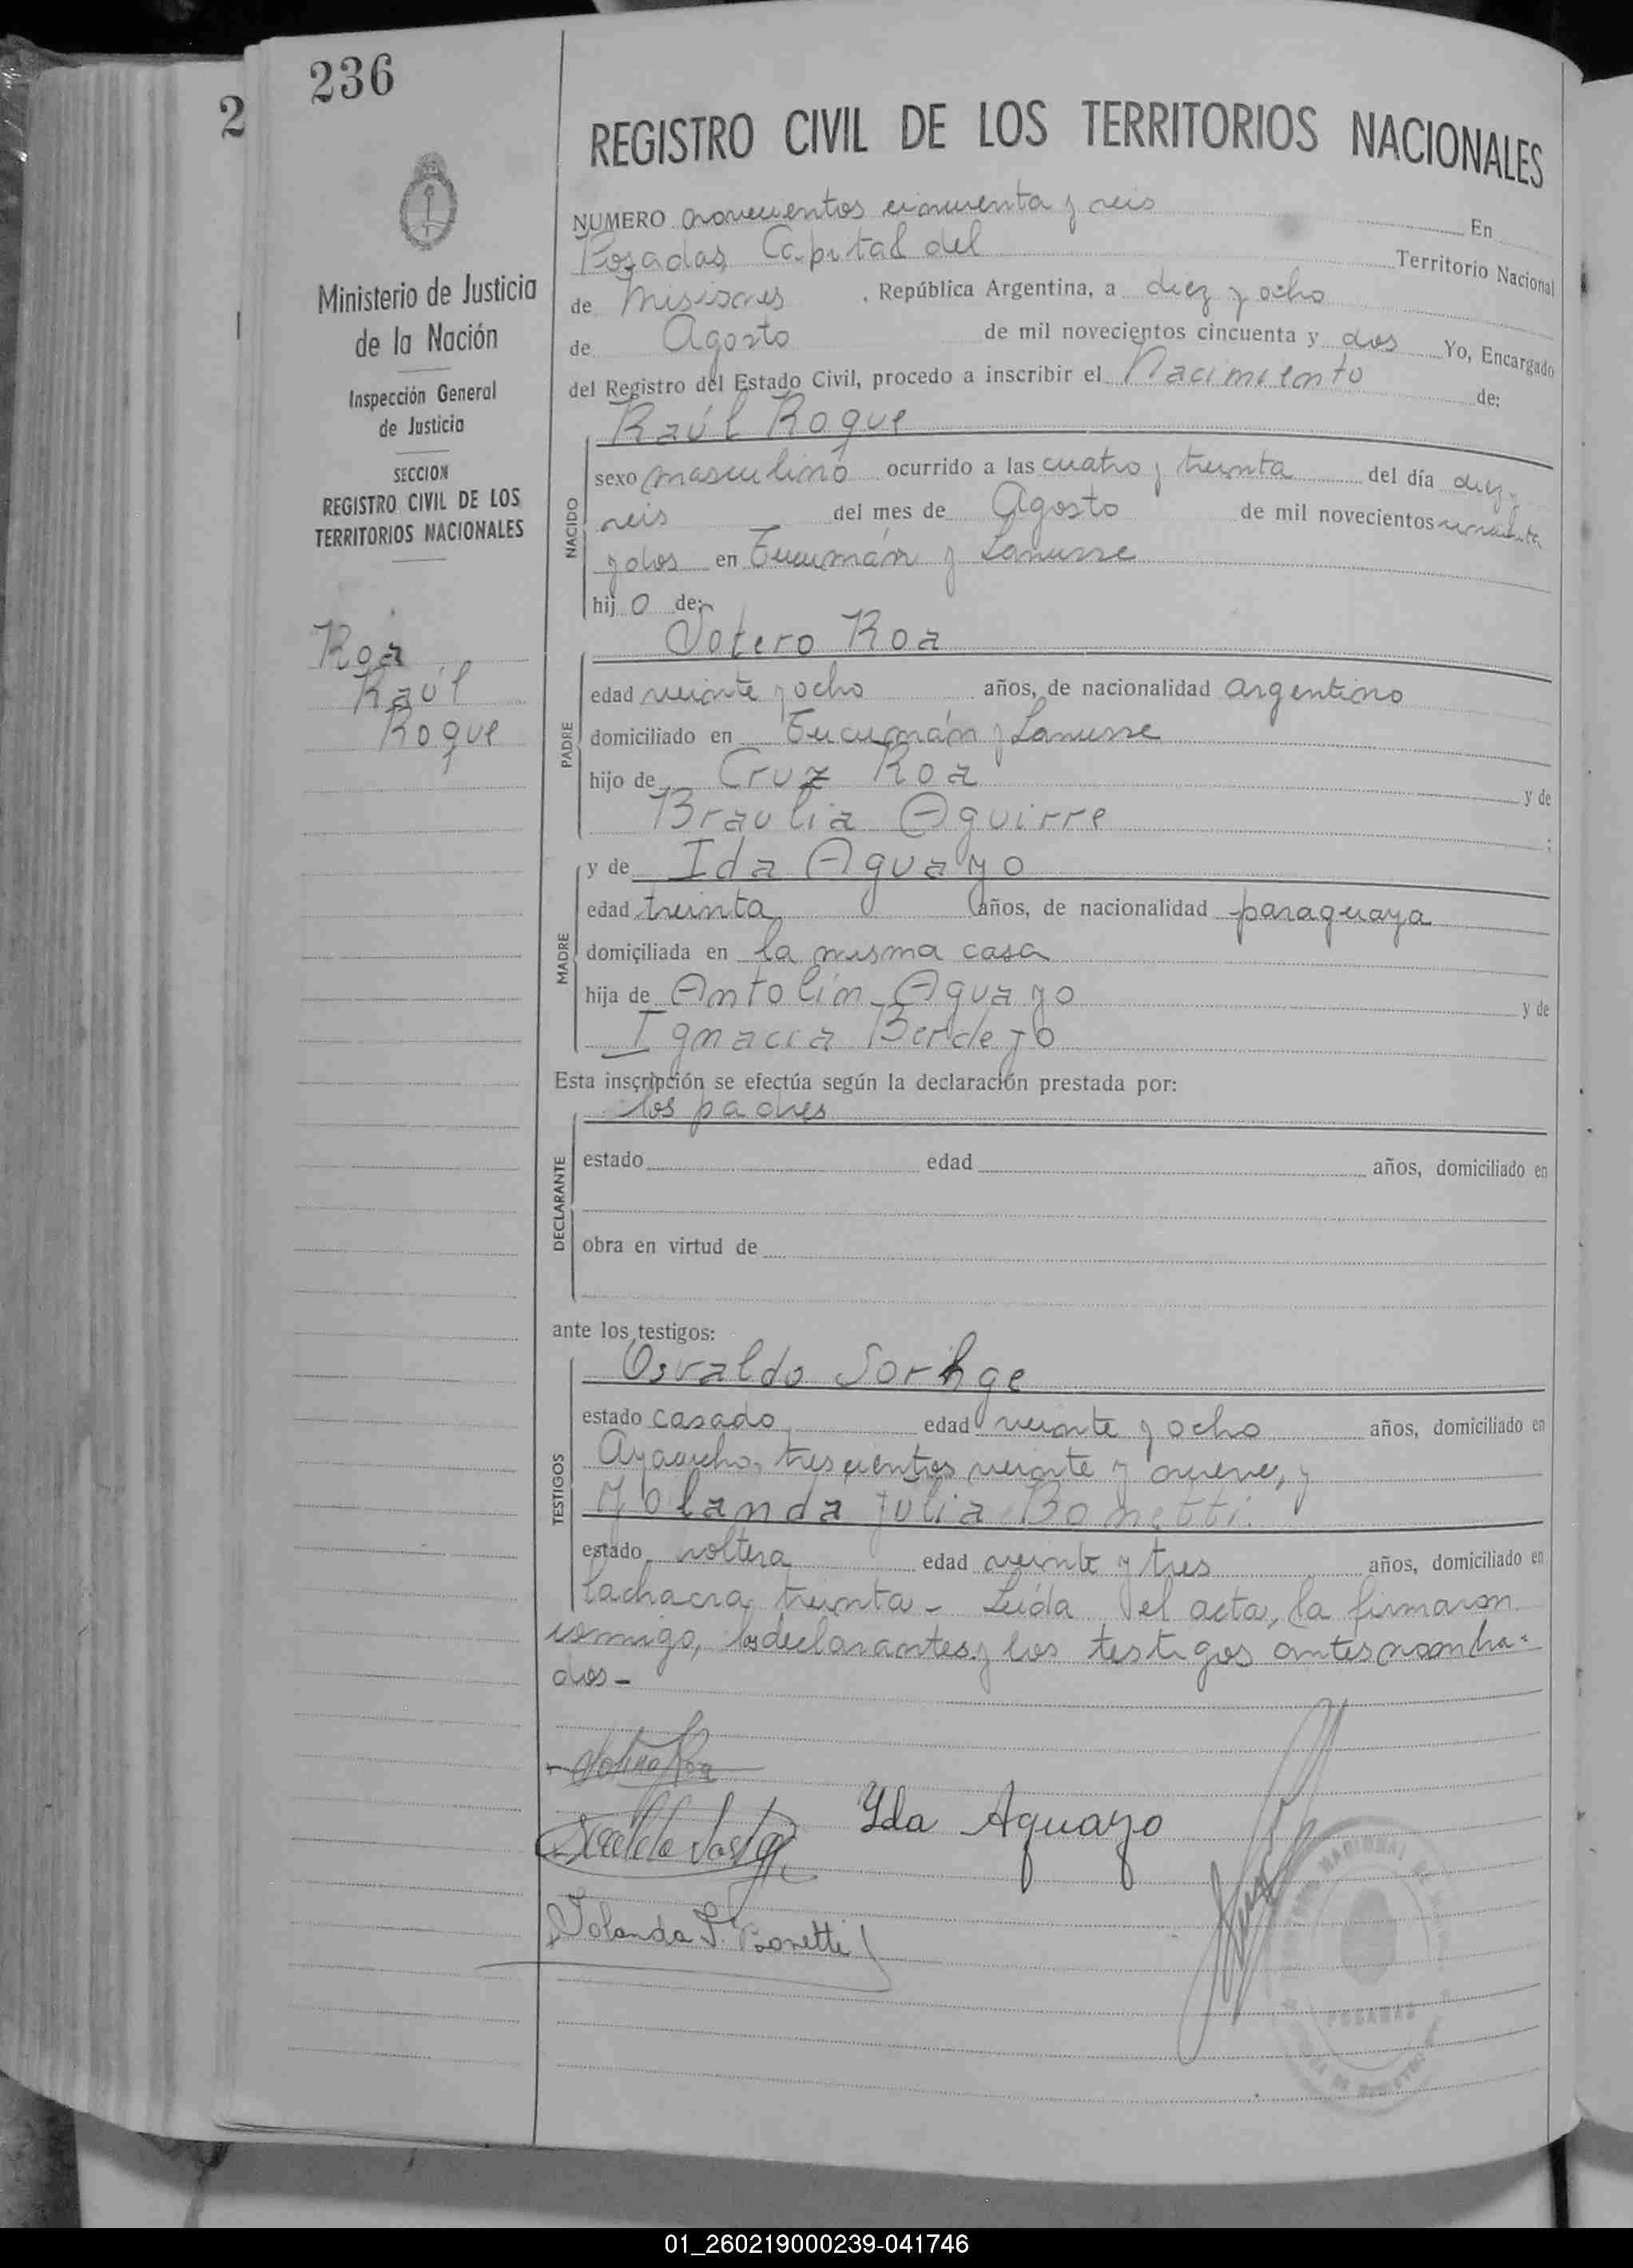 236
2
REGISTRO CIVIL DE LOS TERRITORIOS NACIONALES
Ministerio de Justicia
de la Nación
Inspección General
de Justicia
SECCION
REGISTRO CIVIL DE LOS
TERRITORIOS NACIONALES
Roa
Raúl
Roque
NUMERO novecientos cincuenta y seis En
Posadas Capital del Territorio Nacional
de Misiones, República Argentina, a diez y ocho
de Agosto de mil novecientos cincuenta y dos Yo, Encargado
del Registro del Estado Civil, procedo a inscribir el Nacimiento de:
Raúl Roque
NACIDO
sexo masculino ocurrido a las cuatro y treinta del día diez y
seis del mes de Agosto de mil novecientos cincuenta
y dos en Tucumán y Lanusse
hijo de:
Sotero Roa
PADRE
edad veinte y ocho años, de nacionalidad argentino
domiciliado en Tucumán y Lanusse
hijo de Cruz Roa y de
Braulia Aguirre ;
MADRE
y de Ida Aguayo
edad treinta años, de nacionalidad paraguaya
domiciliada en la misma casa
hija de Antolín Aguayo y de
Ignacia Berdejo
Esta inscripción se efectúa según la declaración prestada por:
los padres
DECLARANTE
estado edad años, domiciliado en
obra en virtud de
ante los testigos:
Osvaldo Sorhge
TESTIGOS
estado casado edad veinte y ocho años, domiciliado en
Ayacucho, trescientos veinte y nueve, y
Yolanda Julia Bonetti.
estado soltera edad veinte y tres años, domiciliado en
Lachacra treinta - Leída el acta, la firmaron
conmigo, los declarantes y los testigos antes nombra=
dos -
Sotero Roa
Yda Aguayo
Yolanda J. Bonetti
POSADAS
01_260219000239-041746